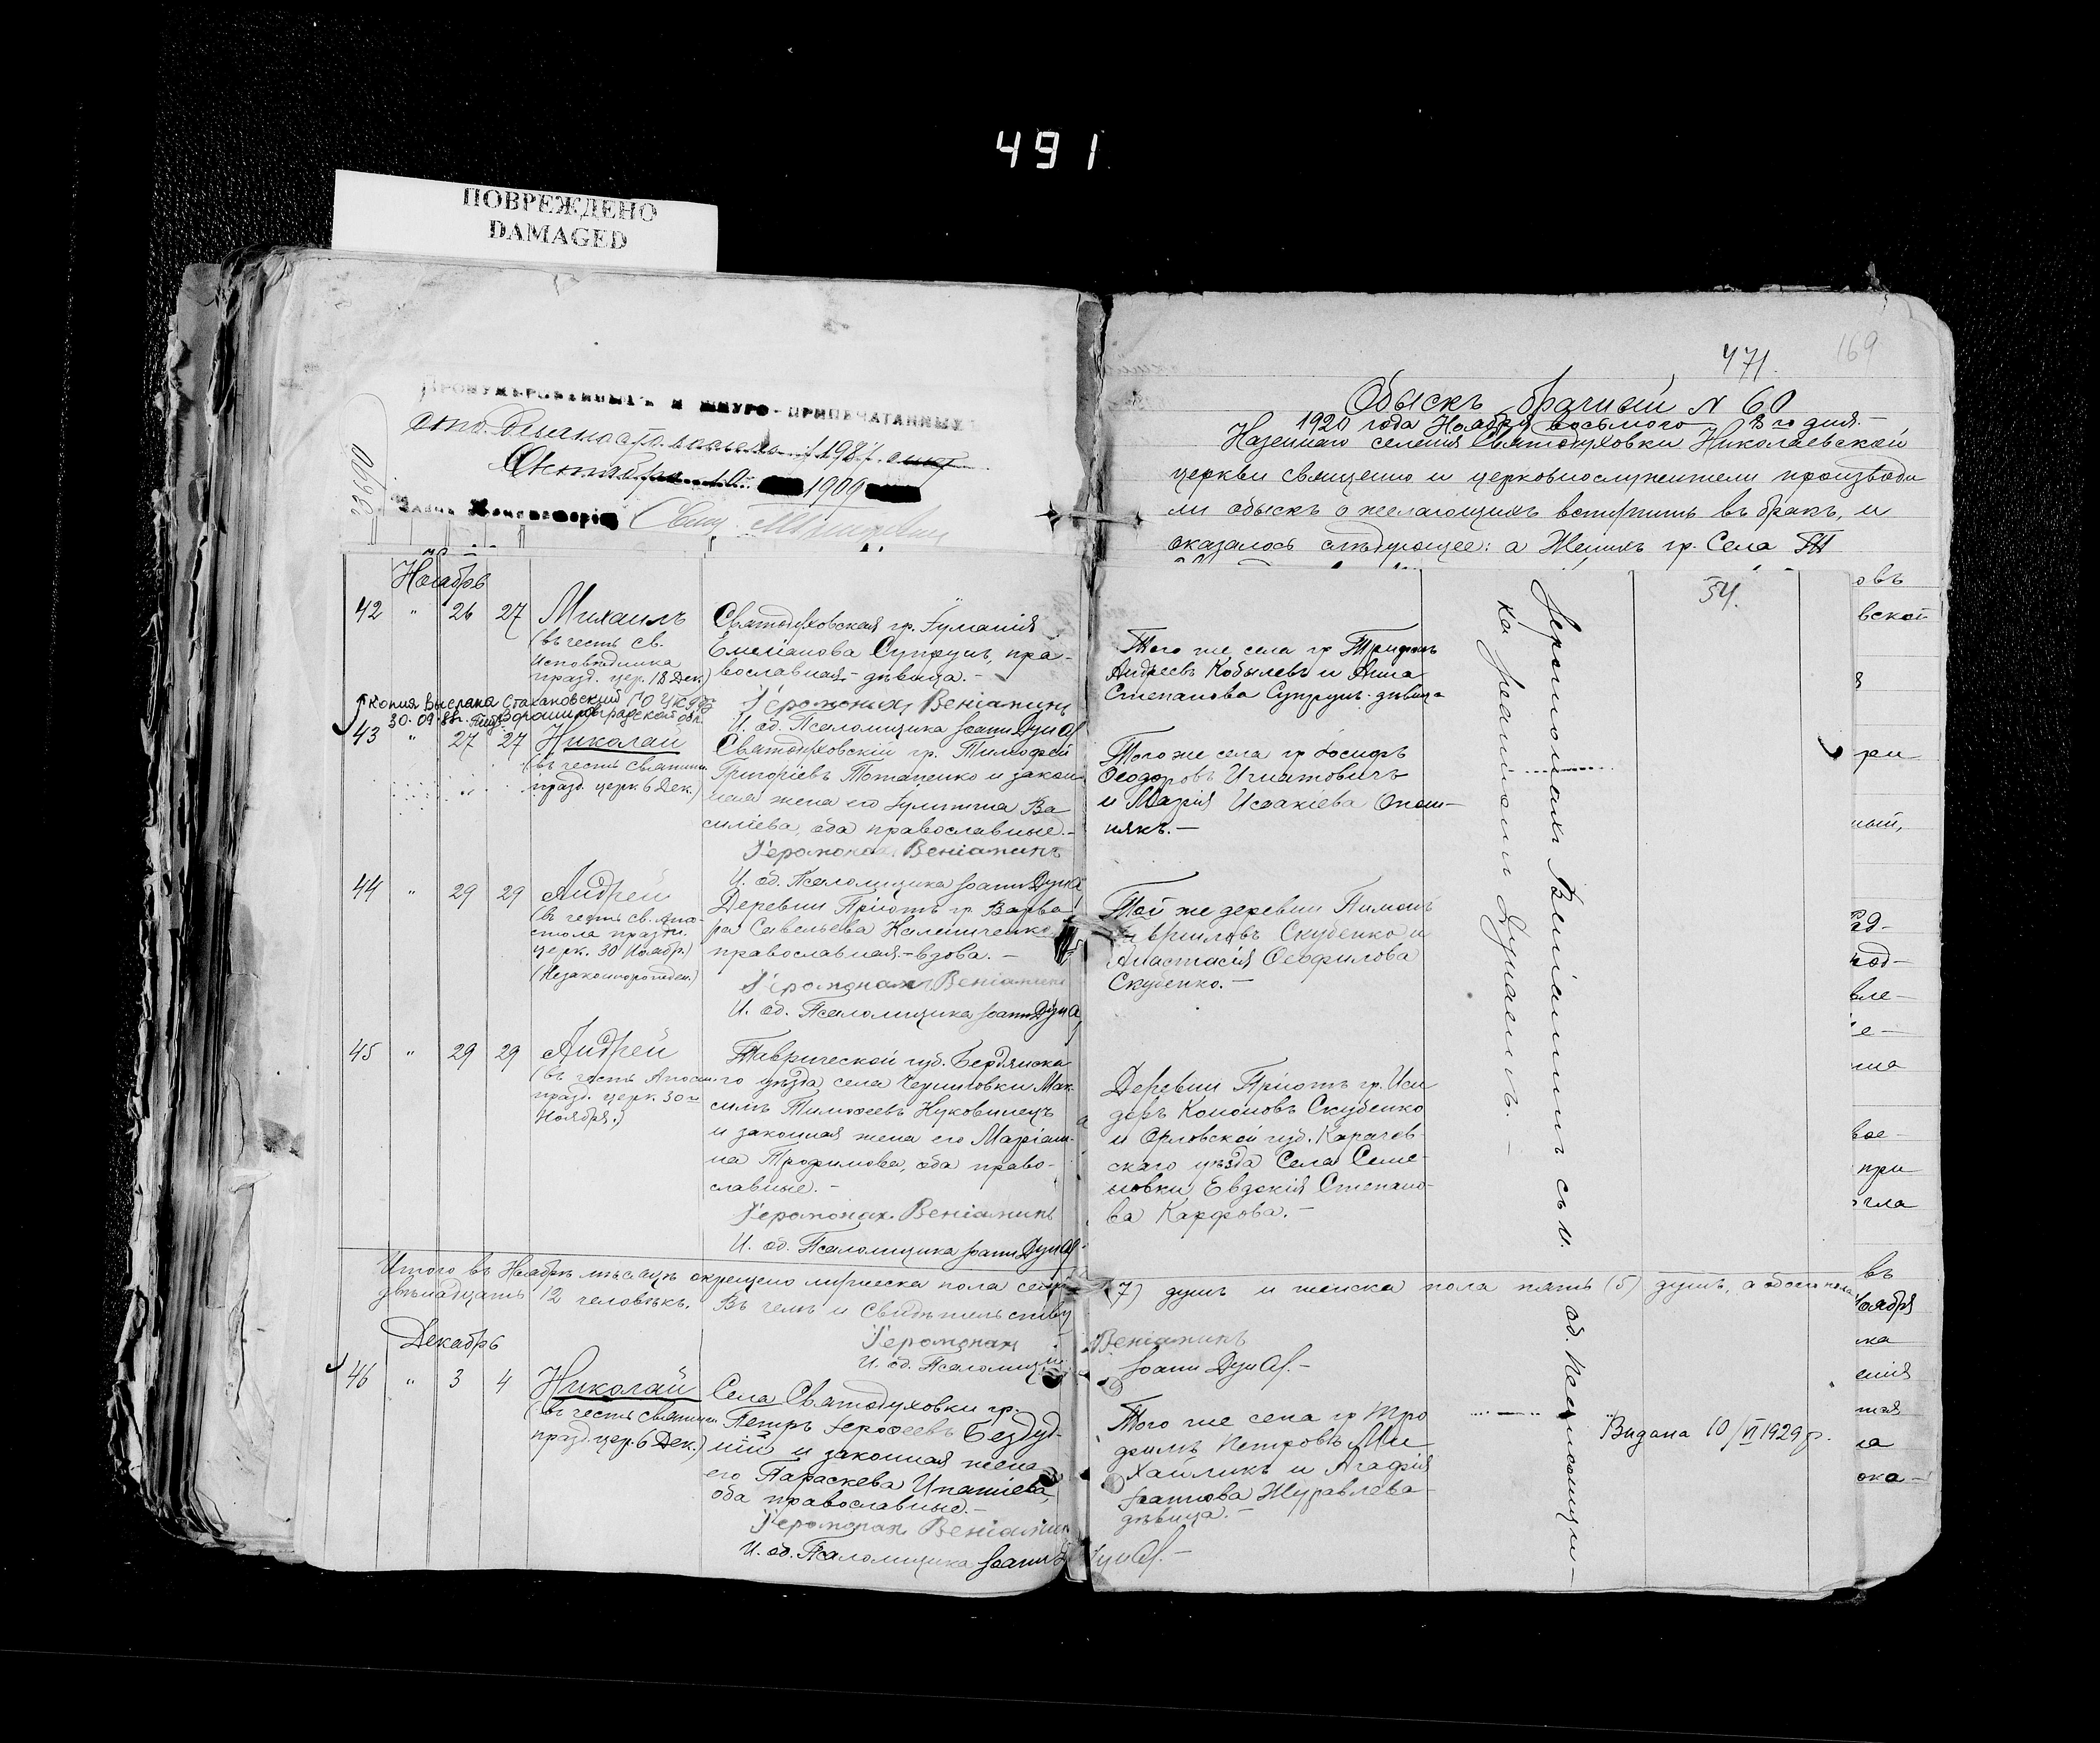 491
ПОВРЕЖДЕНО
DAMAGED
Пронумерованныхъ и шнуро-припечатанныхъ
сто девяносто восемь /198/
Октября 10 1909
Свящ.
471.
169
Обыскъ брачный № 60
1920 года Ноября восьмого 8го дня.
Казеннаго селенія Святодуховки Николаевской
церкви священно и церковнослужители производи
ли обыскъ о желающихъ вступить въ бракъ, и
оказалось слѣдующее: а Женихъ гр. Села
54.
Ноябрь
42 " 26 27 Михаилъ
(въ честь св.
Исповѣдника
празд. цер. 18 Дек.)
Святодуховская гр. Іуліанія
Емеліанова Супрунъ, пра-
вославная - дѣвица. -
Іеромонахъ Веніаминъ
И. об. Псаломщика Іоаннъ
Того же села гр Трифонъ
Андреевъ Кобылевъ и Анна
Степанова Супрунъ - дѣвица
Копия выслана Стахановский
30.09.88г. Ворошиловградской обл.
43 " 27 27 Николай
(въ честь Святит.
празд. церк. 6 Дек.)
Святодуховскій гр. Тимофей
Григоріевъ Потапенко и закон
ная жена его Іулитта Ва
силіева, оба православные. -
Іеромонах Веніаминъ
И. об. Псаломщика Іоаннъ
Того же села гр Іосифъ
Феодоровъ Игнатовичъ
и Марія Исаакіева Опош-
някъ. -
44 " 29 29 Андрей
(въ честь св. Апо-
стола праздн.
церк. 30 Ноябр.)
(Незаконнорожден.)
Деревни Пріютъ гр. Варва
ра Савельева Калениченко
православная - вдова. -
Іеромонах Веніаминъ
И. об. Псаломщика Іоаннъ
Той же деревни Пимонъ
Гавриловъ Скубенко и
Анастасія Феофилова
Скубенко. -
45 " 29 29 Андрей
(въ честь Апост.
празд. церк. 30го
Ноября.)
Таврической губ. Бердянска
го уѣзда села Черниговки Мак
симъ Тимофеевъ Нуковинецъ
и законная жена его Маріам-
на Трофимова, оба право-
славные. -
Іеромонах. Веніаминъ
И. об. Псаломщика Іоаннъ
Деревни Пріютъ гр. Иси
доръ Кононовъ Скубенко
и Орловской губ. Карачев-
скаго уѣзда Села Семе-
новки Евдокія Степано-
ва Карпова. -
Итого въ Ноябрѣ мѣсяцѣ окрещено мужеска пола семь (7) душъ и женска пола пять (5) душъ, а обоего пола
двѣнадцать 12 человѣкъ. Въ чемъ и свидѣтельству
Іеромонах Веніаминъ
И. об. Псаломщи Іоаннъ
Декабрь
46 " 3 4 Николай
(въ честь Святит.
празд. цер. 6 Дек.)
Села Святодуховки гр.
Петръ Іерофеевъ Бездуд-
ній и законная жена
его Параскева Ипатіева,
оба православные. -
Іеромонах Веніаминъ
И. об. Псаломщика Іоаннъ
Того же села гр Тро
фимъ Петровъ Ми
хайликъ и Агафія
Іоаннова Журавлева
дѣвица. -
Видана 10/VI 1929 р.
Іеромонахъ Веніаминъ съ и. об. Псаломщи-
ка